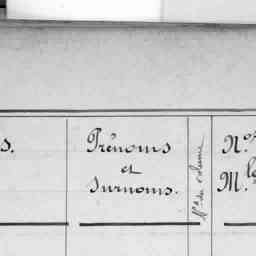 s.
Prénoms
et
surnoms.
N° du volume
Nos
M.le